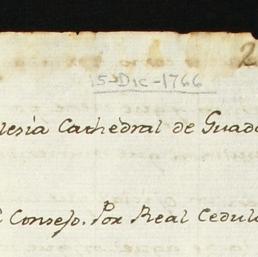 2
15-Dic-1766
lesia Cathedral de Guada
Consejo. Por Real Cedula